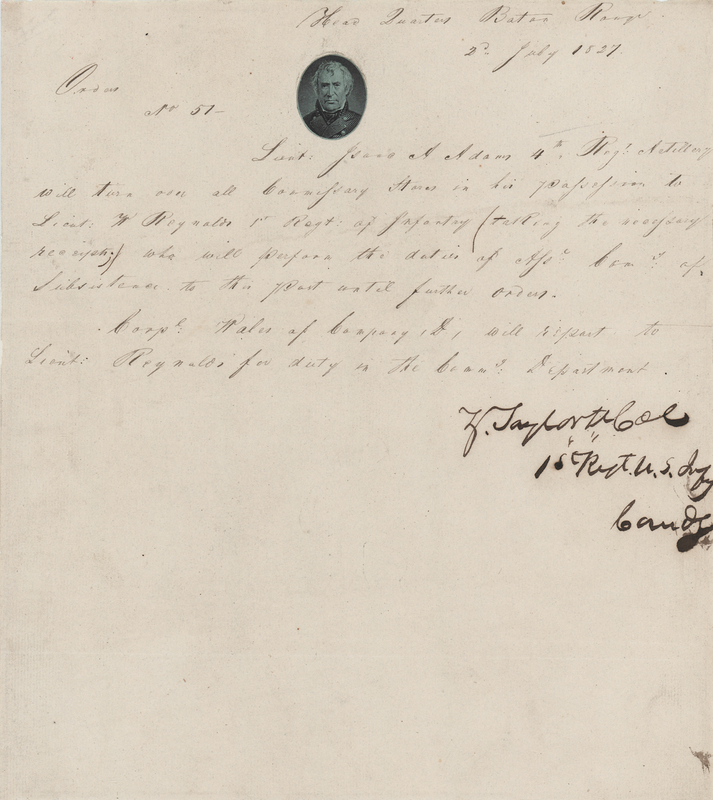 Head Quarters Baton Rouge
2d. July 1827.
Orders
No 51-
Lieut: A Adams 4th. Regt. Artillery
will turn over all Commissary Stores in his possession to
Lieut: W Reynolds 1st Regt: of Infantry (talking the necessary
receipts;) who will perform the duties of Asst. Comy. of
Subsistence to this post until further orders.
Corpl. Wales of Company "D", will report to
Lieut: Reynolds for duty in the Commy: Department.
Z. Taylor Lt Col
1st Regt. U. S. Infy
Comdg